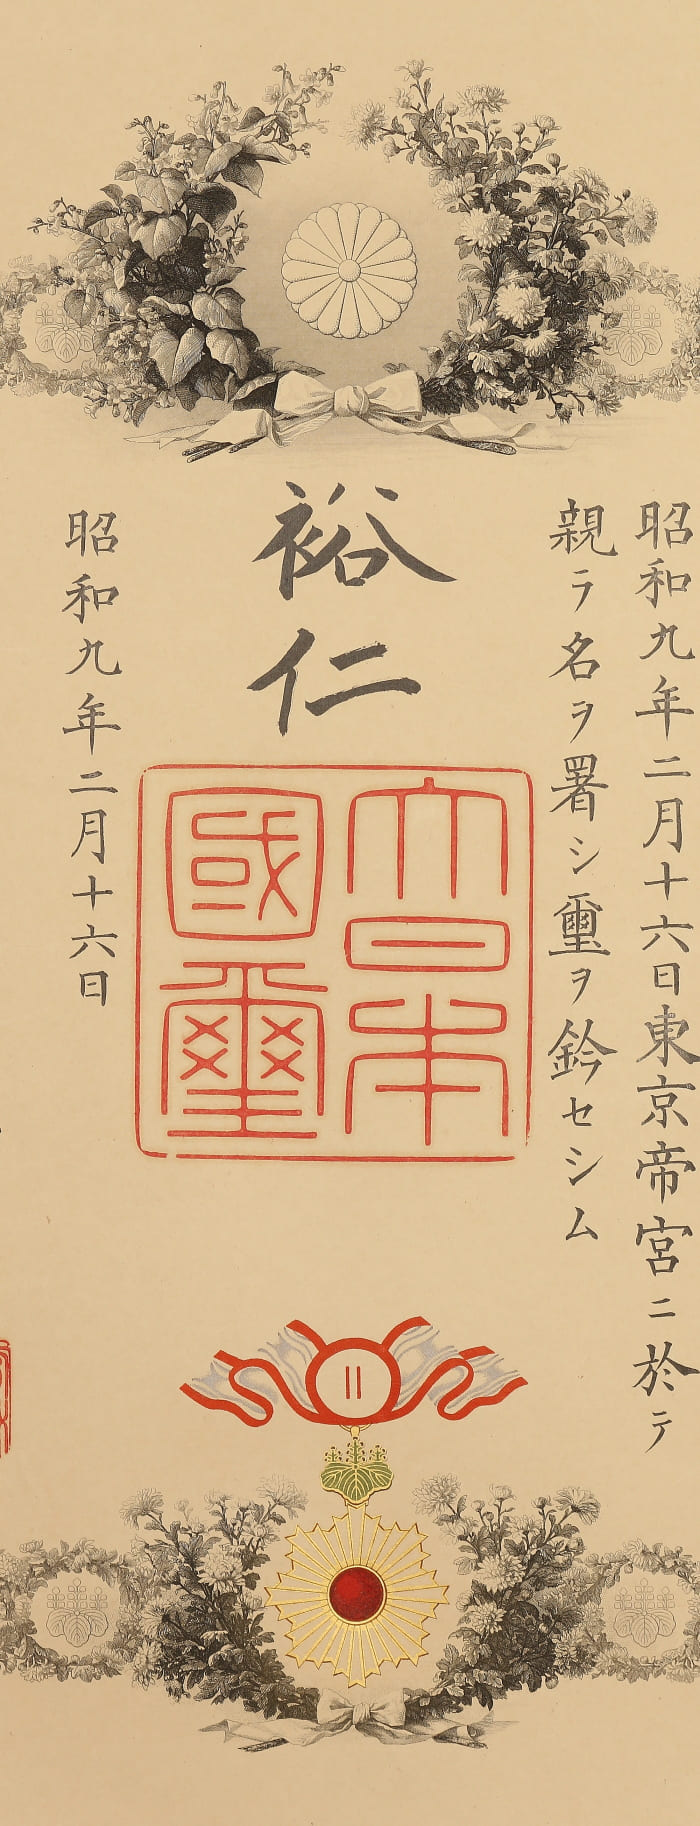 昭和九年二月十六日東京帝宮ニ於テ
親ラ名ヲ署シ璽ヲ鈐セシム
裕仁
大日本
國璽
昭和九年二月十六日